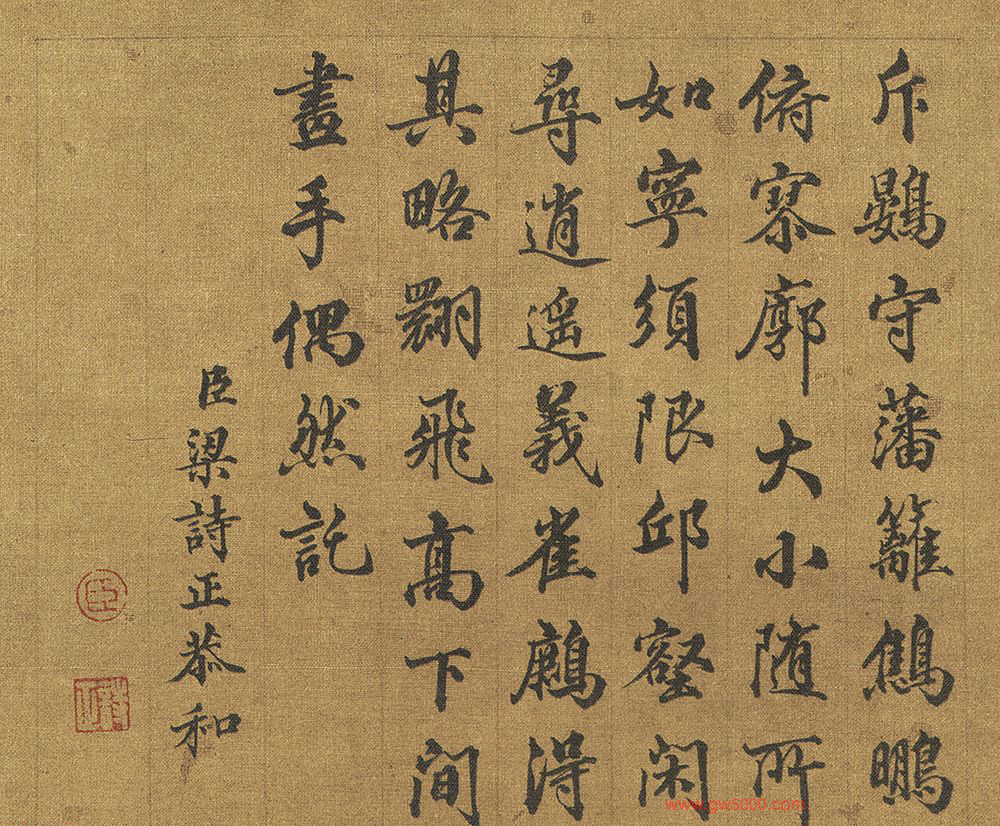 斥鷃守藩籬鷦鵬
俯寥廓大小随所
如寧須限邱壑閑
尋逍遥義雀得
其略翾飛高下間
畫手偶然託
臣梁詩正恭和
臣
www.gw5000.com